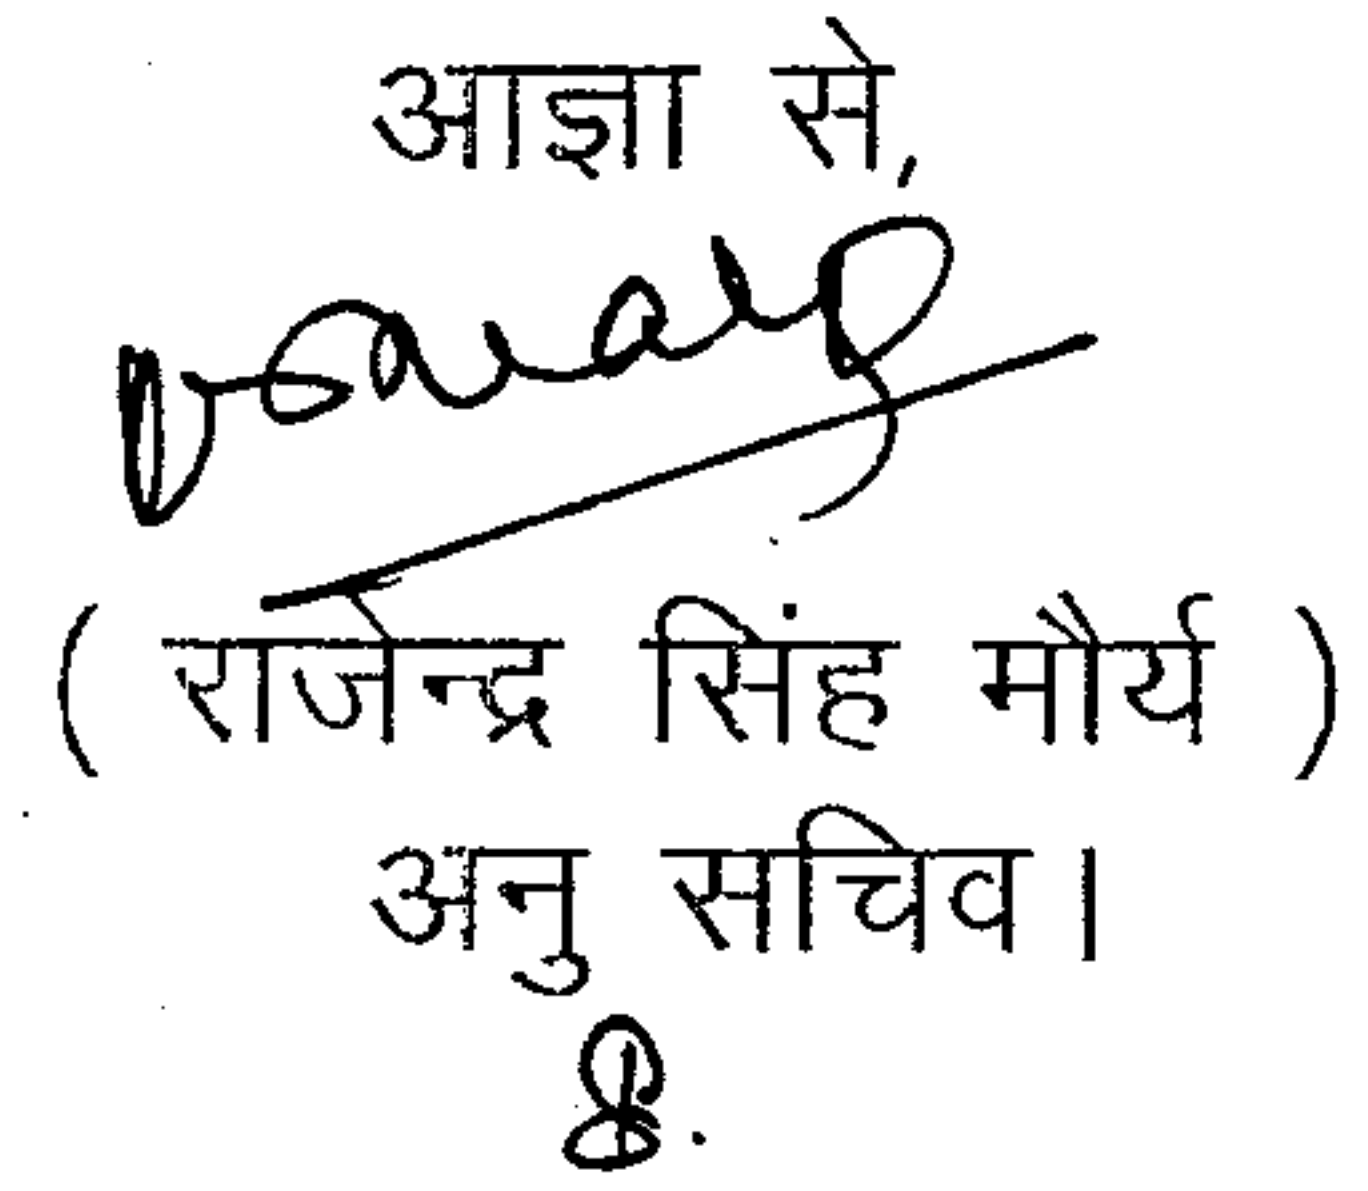 आज्ञा से,
( राजेन्द्र सिंह मौर्य )
अनु सचिव।